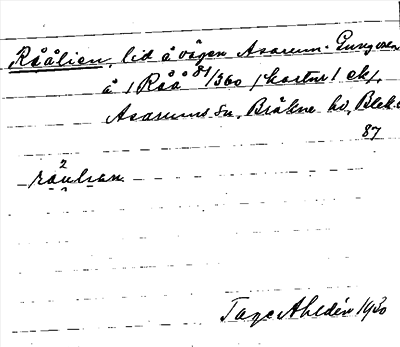 Rååliен, lid å vägen Asarum - Gungvala
å 1 Råå 81/360 1 kartnr 1 ek 1,
Asarums sn, Bräkne hd, Blek.
87
Tage Ahldén 1930